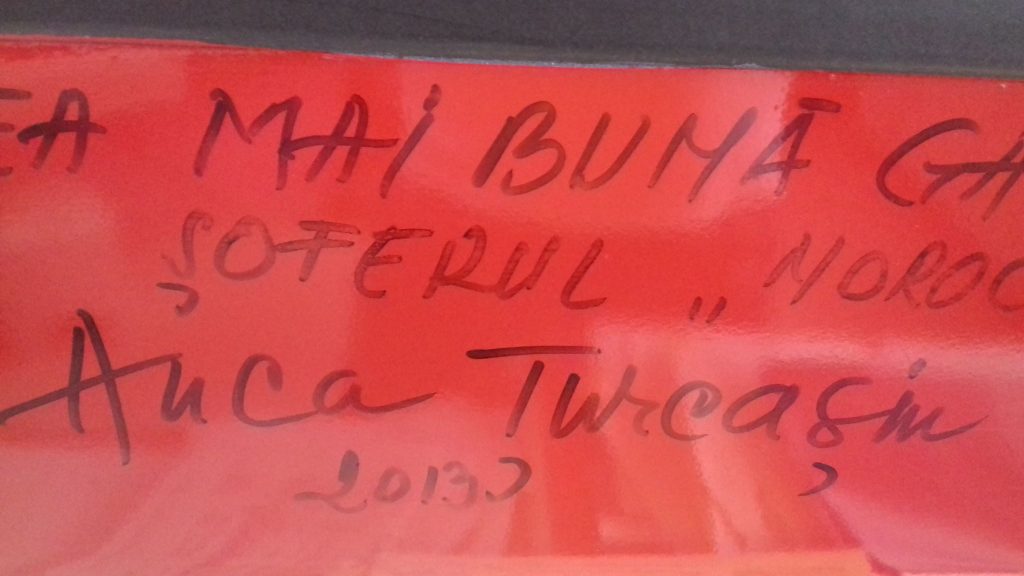 EA MAI BUNĂ GA
ȘOFERUL „NOROC
Anca Turcașiu
2013